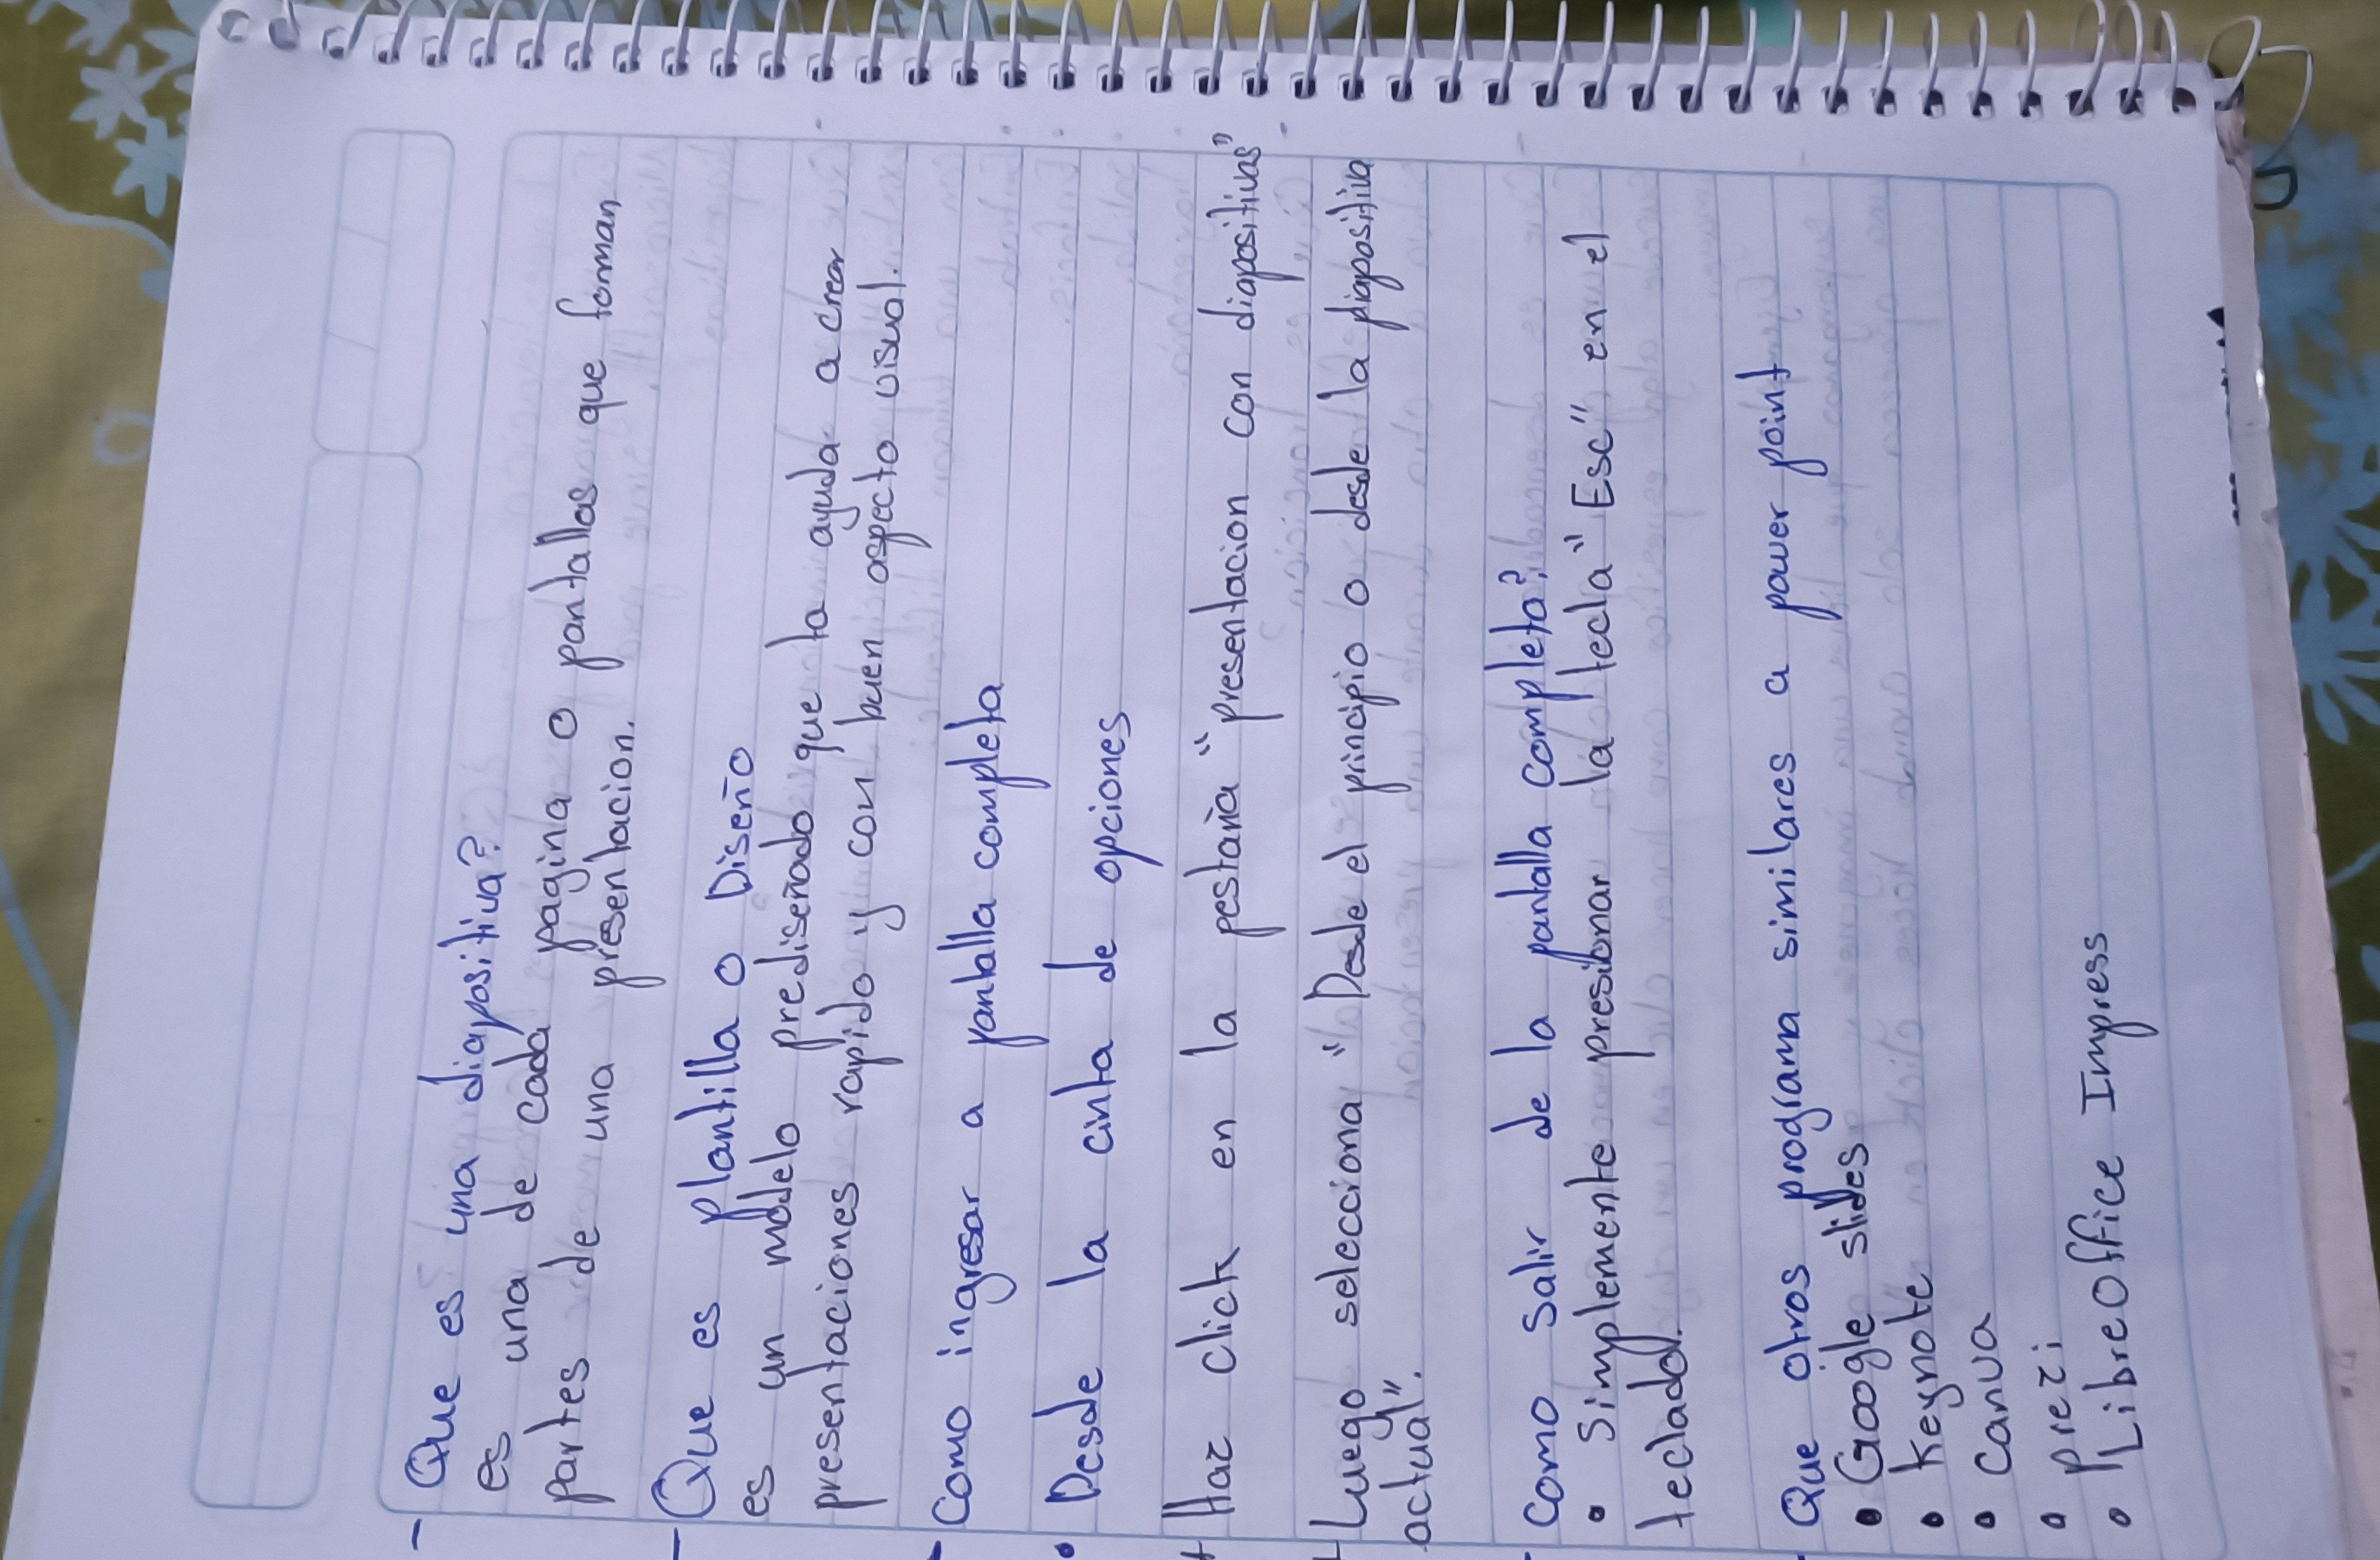 - Que es una diapositiva?
es una de cada pagina o pantallas que forman
partes de una presentacion.
- Que es plantilla o Diseño
es un modelo prediseñado que ta ayuda a crear
presentaciones rapido y con buen aspecto visual.
- Como ingresar a pantalla completa
• Desde la cinta de opciones
+ Haz click en la pestaña "presentacion con diapositivas"
+ Luego selecciona "Desde el principio o desde la diapositiva
actual".
- como salir de la pantalla completa?
• Simplemente presibnar la tecla "Esc" en el
teclado.
Que otros programa similares a power point
• Google slides
• Keynote
• Canva
• prezi
• LibreOffice Impress